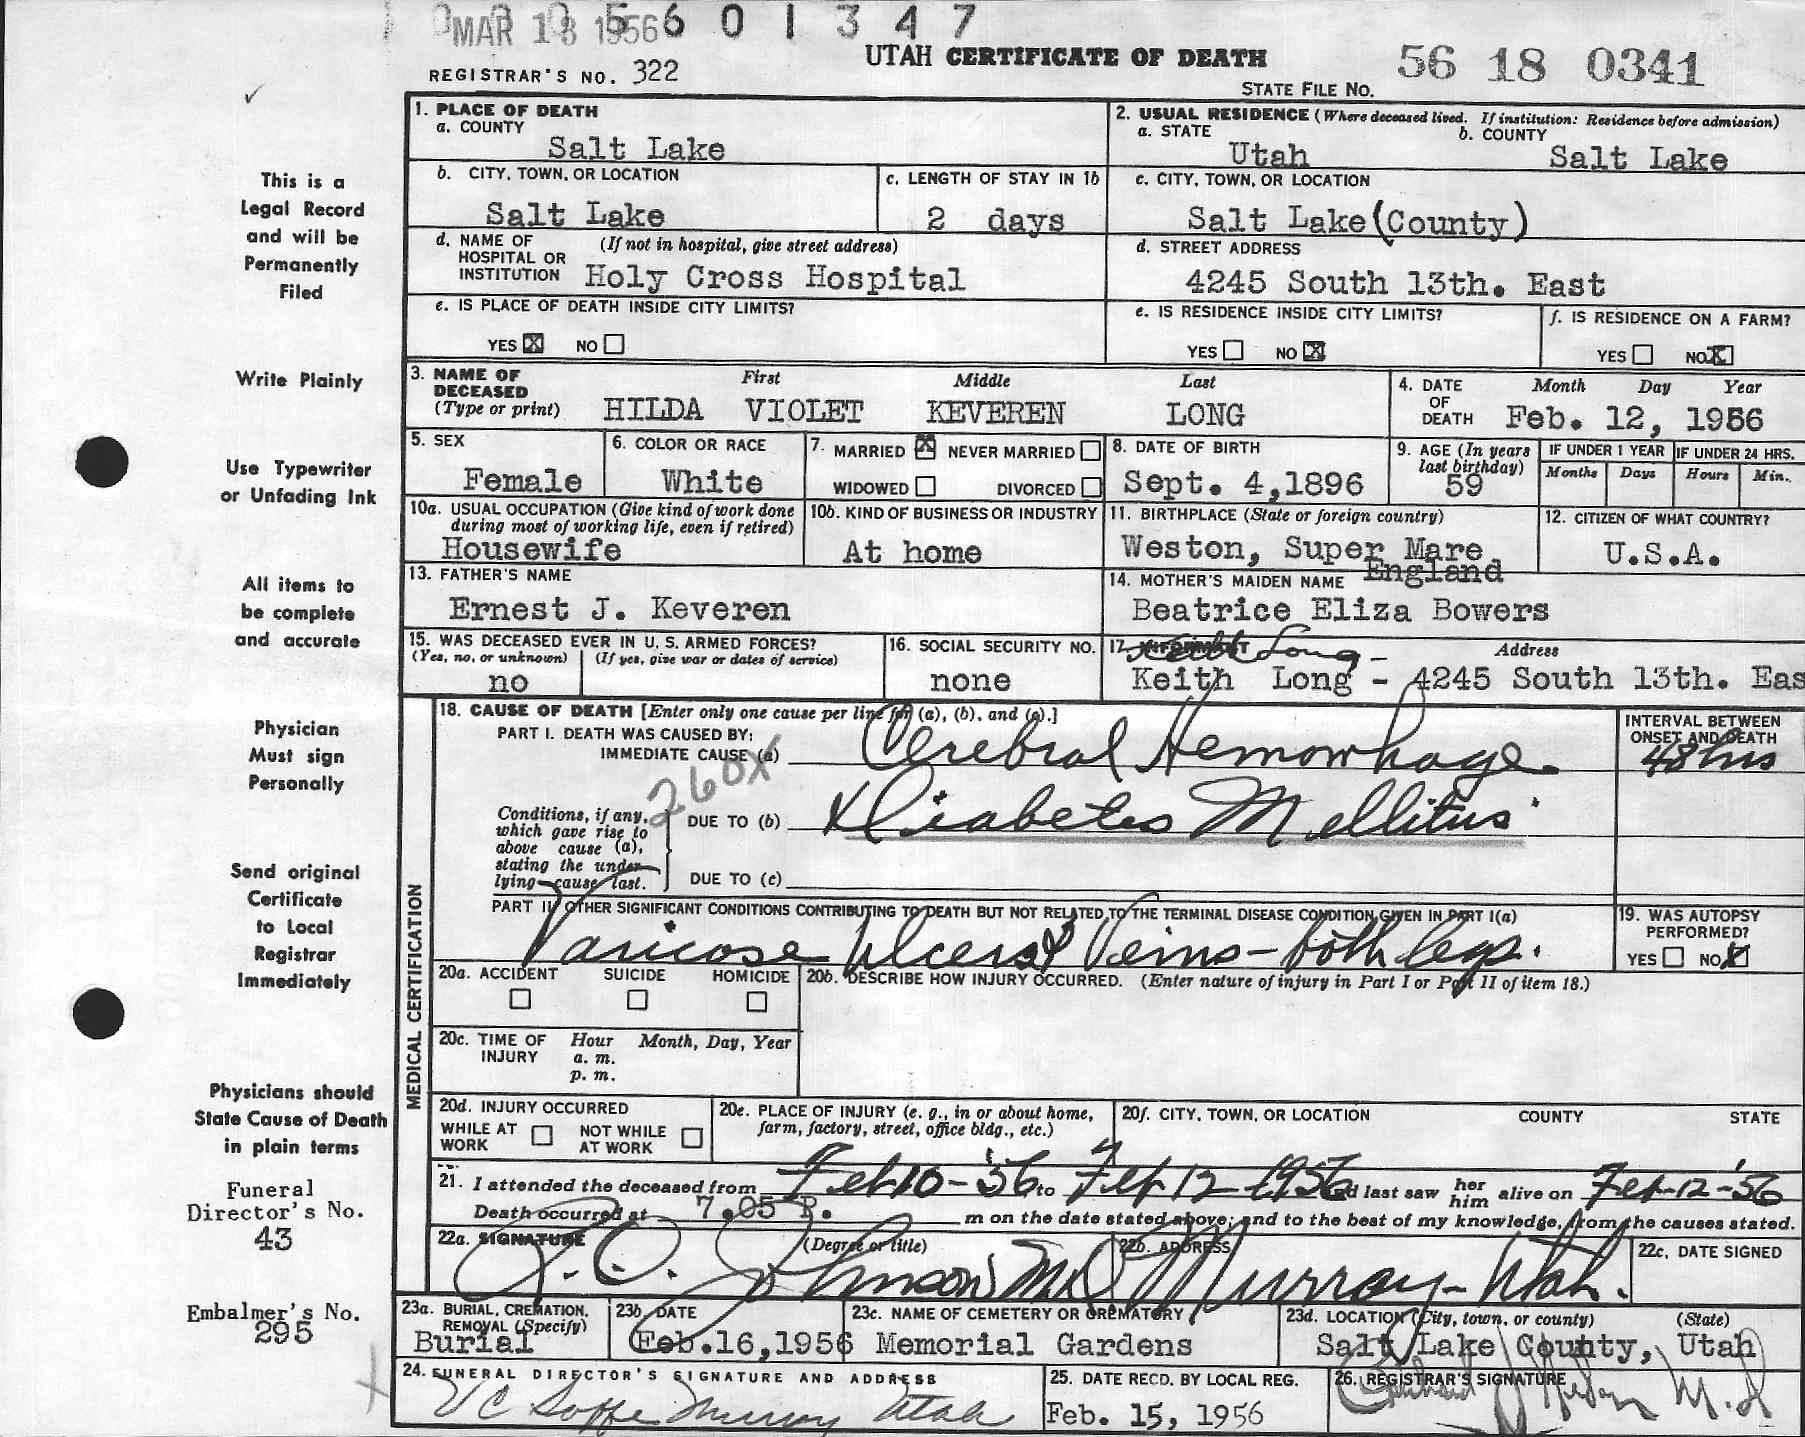 MAR 18 1956 6 0 1 3 4 7
UTAH CERTIFICATE OF DEATH
REGISTRAR'S NO. 322
STATE FILE NO. 56 18 0341
1. PLACE OF DEATH
a. COUNTY
Salt Lake
2. USUAL RESIDENCE (Where deceased lived. If institution: Residence before admission)
a. STATE b. COUNTY
Utah Salt Lake
b. CITY, TOWN, OR LOCATION
Salt Lake
c. LENGTH OF STAY IN 1b
2 days
c. CITY, TOWN, OR LOCATION
Salt Lake (County)
d. NAME OF HOSPITAL OR INSTITUTION (If not in hospital, give street address)
Holy Cross Hospital
d. STREET ADDRESS
4245 South 13th. East
e. IS PLACE OF DEATH INSIDE CITY LIMITS?
YES X NO
e. IS RESIDENCE INSIDE CITY LIMITS?
YES NO X
f. IS RESIDENCE ON A FARM?
YES NO X
3. NAME OF DECEASED (Type or print)
First Middle Last
HILDA VIOLET KEVEREN LONG
4. DATE OF DEATH Month Day Year
Feb. 12, 1956
5. SEX
Female
6. COLOR OR RACE
White
7. MARRIED X NEVER MARRIED
WIDOWED DIVORCED
8. DATE OF BIRTH
Sept. 4,1896
9. AGE (In years last birthday)
59
IF UNDER 1 YEAR IF UNDER 24 HRS.
Months Days Hours Min.
10a. USUAL OCCUPATION (Give kind of work done during most of working life, even if retired)
Housewife
10b. KIND OF BUSINESS OR INDUSTRY
At home
11. BIRTHPLACE (State or foreign country)
Weston, Super Mare
England
12. CITIZEN OF WHAT COUNTRY?
U.S.A.
13. FATHER'S NAME
Ernest J. Keveren
14. MOTHER'S MAIDEN NAME
Beatrice Eliza Bowers
15. WAS DECEASED EVER IN U. S. ARMED FORCES?
(Yes, no, or unknown) (If yes, give war or dates of service)
no
16. SOCIAL SECURITY NO.
none
17. INFORMANT Keith Long - Address
Keith Long - 4245 South 13th. Eas
MEDICAL CERTIFICATION
18. CAUSE OF DEATH [Enter only one cause per line for (a), (b), and (c).]
PART I. DEATH WAS CAUSED BY:
IMMEDIATE CAUSE (a) Cerebral Hemorrhage
INTERVAL BETWEEN ONSET AND DEATH
48 hrs
260X
Conditions, if any, which gave rise to above cause (a), stating the underlying cause last.
DUE TO (b) X Diabetes Mellitus
DUE TO (c)
PART II. OTHER SIGNIFICANT CONDITIONS CONTRIBUTING TO DEATH BUT NOT RELATED TO THE TERMINAL DISEASE CONDITION GIVEN IN PART I(a)
Varicose Ulcers & Veins - both legs.
19. WAS AUTOPSY PERFORMED?
YES NO X
20a. ACCIDENT SUICIDE HOMICIDE
20b. DESCRIBE HOW INJURY OCCURRED. (Enter nature of injury in Part I or Part II of item 18.)
20c. TIME OF INJURY Hour Month, Day, Year
a. m.
p. m.
20d. INJURY OCCURRED
WHILE AT WORK NOT WHILE AT WORK
20e. PLACE OF INJURY (e. g., in or about home, farm, factory, street, office bldg., etc.)
20f. CITY, TOWN, OR LOCATION COUNTY STATE
21. I attended the deceased from Feb 10 - '56 to Feb 12 - 1956 and last saw her him alive on Feb-12-'56
Death occurred at 7.05 P. m on the date stated above; and to the best of my knowledge, from the causes stated.
22a. SIGNATURE (Degree or title)
Johnson MD
22b. ADDRESS
Murray - Utah.
22c. DATE SIGNED
23a. BURIAL, CREMATION, REMOVAL (Specify)
Burial
23b. DATE
Feb.16,1956
23c. NAME OF CEMETERY OR CREMATORY
Memorial Gardens
23d. LOCATION (City, town, or county) (State)
Salt Lake County, Utah
24. FUNERAL DIRECTOR'S SIGNATURE AND ADDRESS
Murray Utah
25. DATE RECD. BY LOCAL REG.
Feb. 15, 1956
26. REGISTRAR'S SIGNATURE
M.D
This is a
Legal Record
and will be
Permanently
Filed
Write Plainly
Use Typewriter
or Unfading Ink
All items to
be complete
and accurate
Physician
Must sign
Personally
Send original
Certificate
to Local
Registrar
Immediately
Physicians should
State Cause of Death
in plain terms
Funeral
Director's No.
43
Embalmer's No.
295